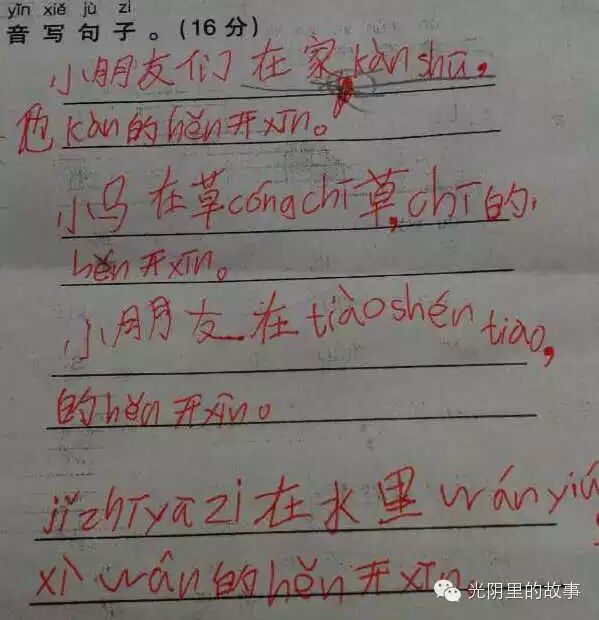 yīn xiě jù zi
音写句子。(16分)
小朋友们在家kànshū,
他kàn的hěn开xīn。
小鸟在草cóngchī草,chī的
hěn开xīn。
小朋友在tiàoshén tiao,
的hěn开xīn。
jǐzhīyāzi在水里wányiú
xì wán的hěn开xīn.
光阴里的故事